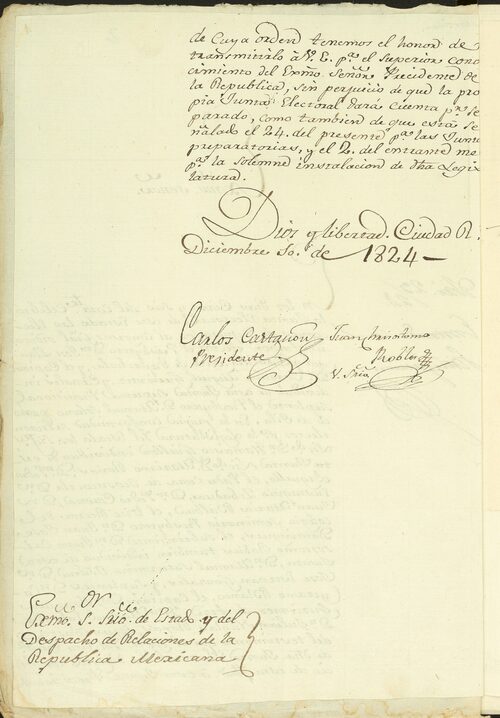 de Cuya orden tenemos el honor de
transmitirlo à V. E. pª. el superior cono
cimiento del Exmo. Señor Presidente de
la Republica, sin perjuicio de que la pro
pia Junta Electoral dará cuenta pr. se
parado, como tambien de que está se
ñalado el 24. del presente pª. las Juntas
preparatorias, y el 2. del entrante me
pª. la solemne instalacion de Legis
latura.
Dios y libertad. Ciudad R.
Diciembre de 1824
Carlos Castañon Juan Crisostomo
Presidente Robles
V. Srio
Exmo. S. Srio. de Estado y del
Despacho de Relaciones de la
Republica Mexicana